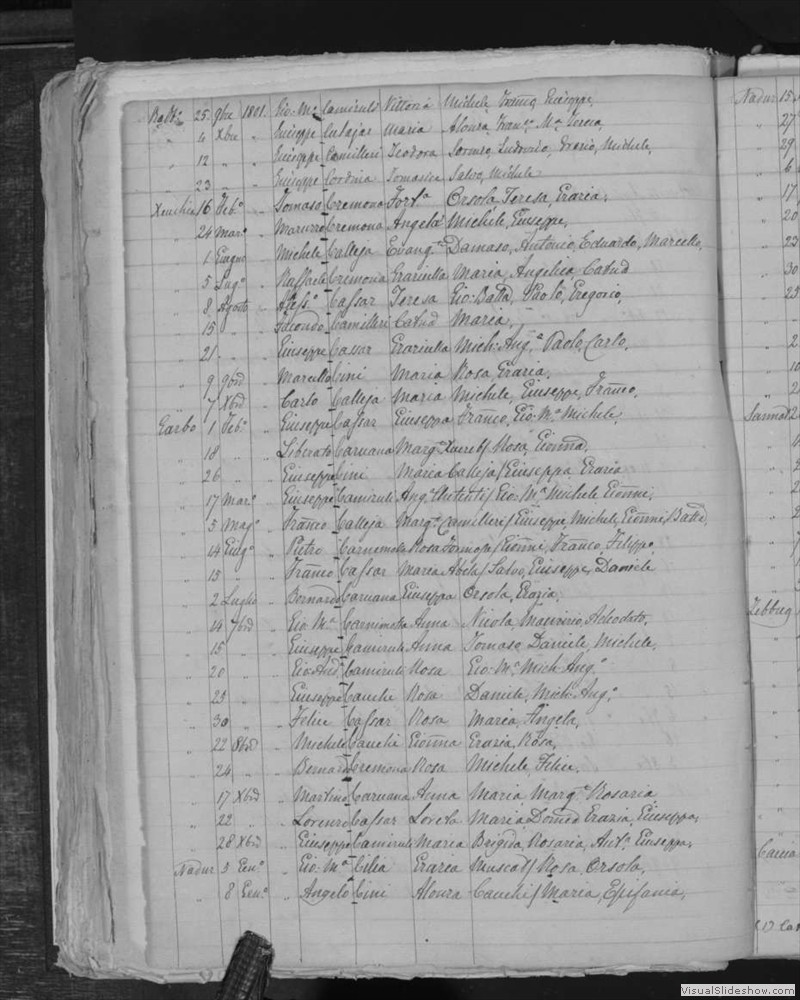 25 9bre 1801. Gio: Ma Camiruli Vittoria Michele Franco Giuseppe,
" 4 Xbre " Giuseppe Cutajar Maria Alonza Franca Ma Teresa,
" 12 " " Giuseppe Camilleri Teodora Lorenzo, Ludovico, Grazio, Michele,
" 23 " " Giuseppe Cordina Tomasica Salvo, Michele
Xeuchia 16 Feb.o " Tomaso Cremona Fort.a Orsola, Teresa, Grazia,
" 24 Mar.o " Cremona Angela Michele, Giuseppe,
" 1 Giugno " Michele Calleja Evang.ta Damaso, Antonio, Eduardo, Marcello,
" 5 Lug.o " Raffaele Cremona Graziulla Maria, Angelica, Catud
" 8 Agosto " Cassar Teresa Gio: Batta, Paolo, Gregorio,
" 15 " " Secondo Camilleri Catud Maria,
" 21 " " Giuseppe Cassar Graziulla Mich: Ang.a Paolo, Carlo,
" 9 9bre " Marcello Cini Maria Rosa, Grazia,
" 7 Xbre " Carlo Calleja Maria Michele, Giuseppe, Franco,
Garbo 1 Feb.o " Giuseppe Cassar Giuseppa Franco, Gio: Ma Michele,
" 18 " " Liberato Caruana Marg.a Xuereb / Rosa, Gionna,
" 26 " " Giuseppe Cini Maria Calleja / Giuseppa, Grazia
" 17 Mar.o " Giuseppe Camiruli Ang.a / Gio: Ma Michele Gionni,
" 5 Mag.o " Franco Calleja Marg.a Camilleri / Giuseppe, Michele, Gionni, Batta,
" 14 Giug.o " Pietro Carnemolla Rosa / Gionni, Franco, Filippo,
" 15 " " Franco Cassar Maria Abela / Salvo, Giuseppe, Daniele
" 2 Luglio " Bernardo Caruana Giuseppa Orsola, Grazia,
" 14 7bre " Gio: Ma Carnimolla Anna Nicola, Maurizio, Adeodato,
" 15 " " Giuseppe Camiruli Anna Tomaso, Daniele, Michele,
" 20 " " Gio: And. Camiruli Rosa Gio: Ma Mich: Ang.o
" 23 " " Giuseppe Cauchi Rosa Daniele, Mich: Ang.o
" 30 " " Felice Cassar Rosa Maria, Angela,
" 22 8bre " Michele Cauchi Gionna Grazia, Rosa,
" 24 " " Bernard Cremona Rosa Michele, Felice,
" 17 Xbre " Martino Caruana Anna Maria Marg.a Rosaria
" 22 " " Lorenzo Cassar Loreta Maria, Domca Grazia, Giuseppa,
" 28 Xbre " Giuseppe Camiruli Maria Brigida, Rosaria, Ant.a Giuseppa,
Nadur 3 Gen.o " Gio: Ma Cilia Grazia Muscat / Rosa, Orsola,
" 8 Gen.o " Angelo Cini Alonza Cauchi / Maria, Epifania,
Nadur 15
27
29
6
17
20
23
30
25
2
10
2
Sannat 2
Zebbug
Caccia